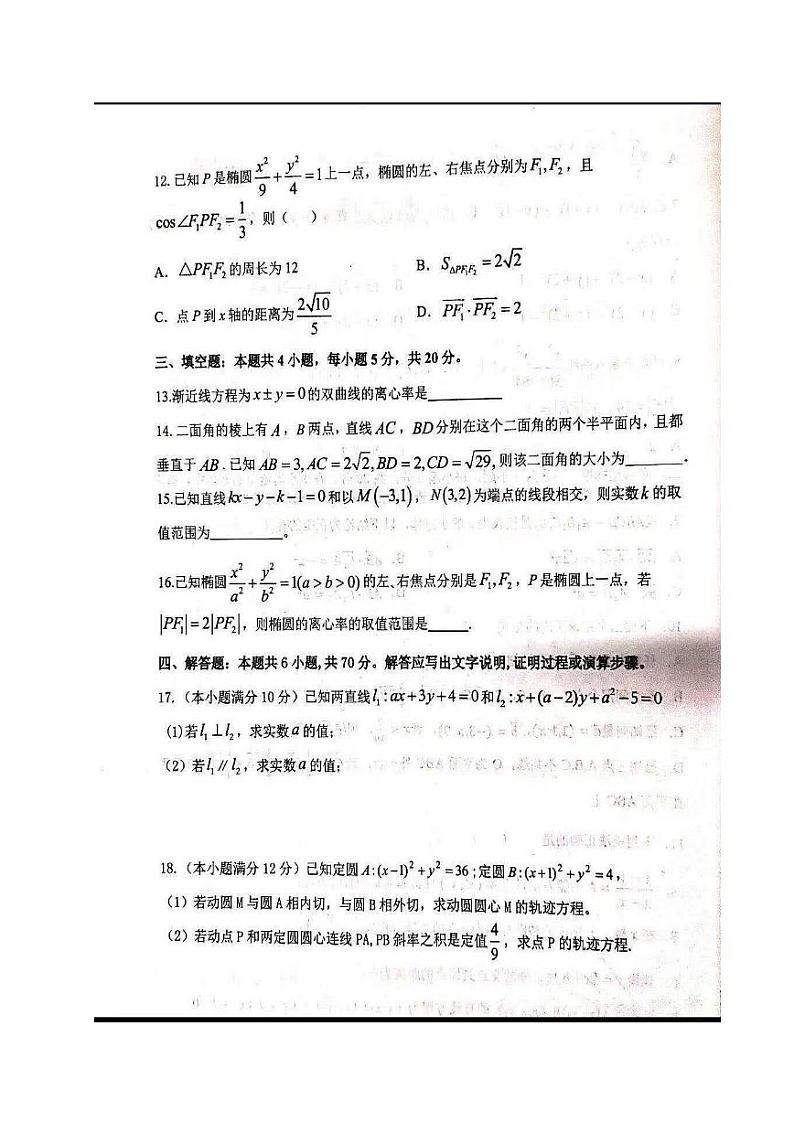 12. 已知 P 是椭圆 x²/9 + y²/4 = 1 上一点，椭圆的左、右焦点分别为 F₁, F₂，且
cos∠F₁PF₂ = 1/3，则（ ）
A. △PF₁F₂ 的周长为 12 B. S△PF₁F₂ = 2√2
C. 点 P 到 x 轴的距离为 2√10/5 D. PF₁ · PF₂ = 2
三、填空题：本题共 4 小题，每小题 5 分，共 20 分。
13.渐近线方程为 x ± y = 0 的双曲线的离心率是________
14. 二面角的棱上有 A，B 两点，直线 AC，BD 分别在这个二面角的两个半平面内，且都
垂直于 AB. 已知 AB = 3, AC = 2√2, BD = 2, CD = √29, 则该二面角的大小为________.
15.已知直线 kx − y − k − 1 = 0 和以 M(−3,1)，N(3,2) 为端点的线段相交，则实数 k 的取
值范围为________。
16.已知椭圆 x²/a² + y²/b² = 1(a > b > 0) 的左、右焦点分别是 F₁, F₂，P 是椭圆上一点，若
|PF₁| = 2|PF₂|，则椭圆的离心率的取值范围是_____.
四、解答题：本题共 6 小题, 共 70 分。解答应写出文字说明, 证明过程或演算步骤。
17.（本小题满分 10 分）已知两直线 l₁ : ax + 3y + 4 = 0 和 l₂ : x + (a − 2)y + a² − 5 = 0
(1)若 l₁ ⊥ l₂，求实数 a 的值；
（2）若 l₁ ∥ l₂，求实数 a 的值；
18.（本小题满分 12 分）已知定圆 A:(x−1)² + y² = 36 ; 定圆 B:(x+1)² + y² = 4，
（1）若动圆 M 与圆 A 相内切，与圆 B 相外切，求动圆圆心 M 的轨迹方程。
（2）若动点 P 和两定圆圆心连线 PA, PB 斜率之积是定值 4/9，求点 P 的轨迹方程.